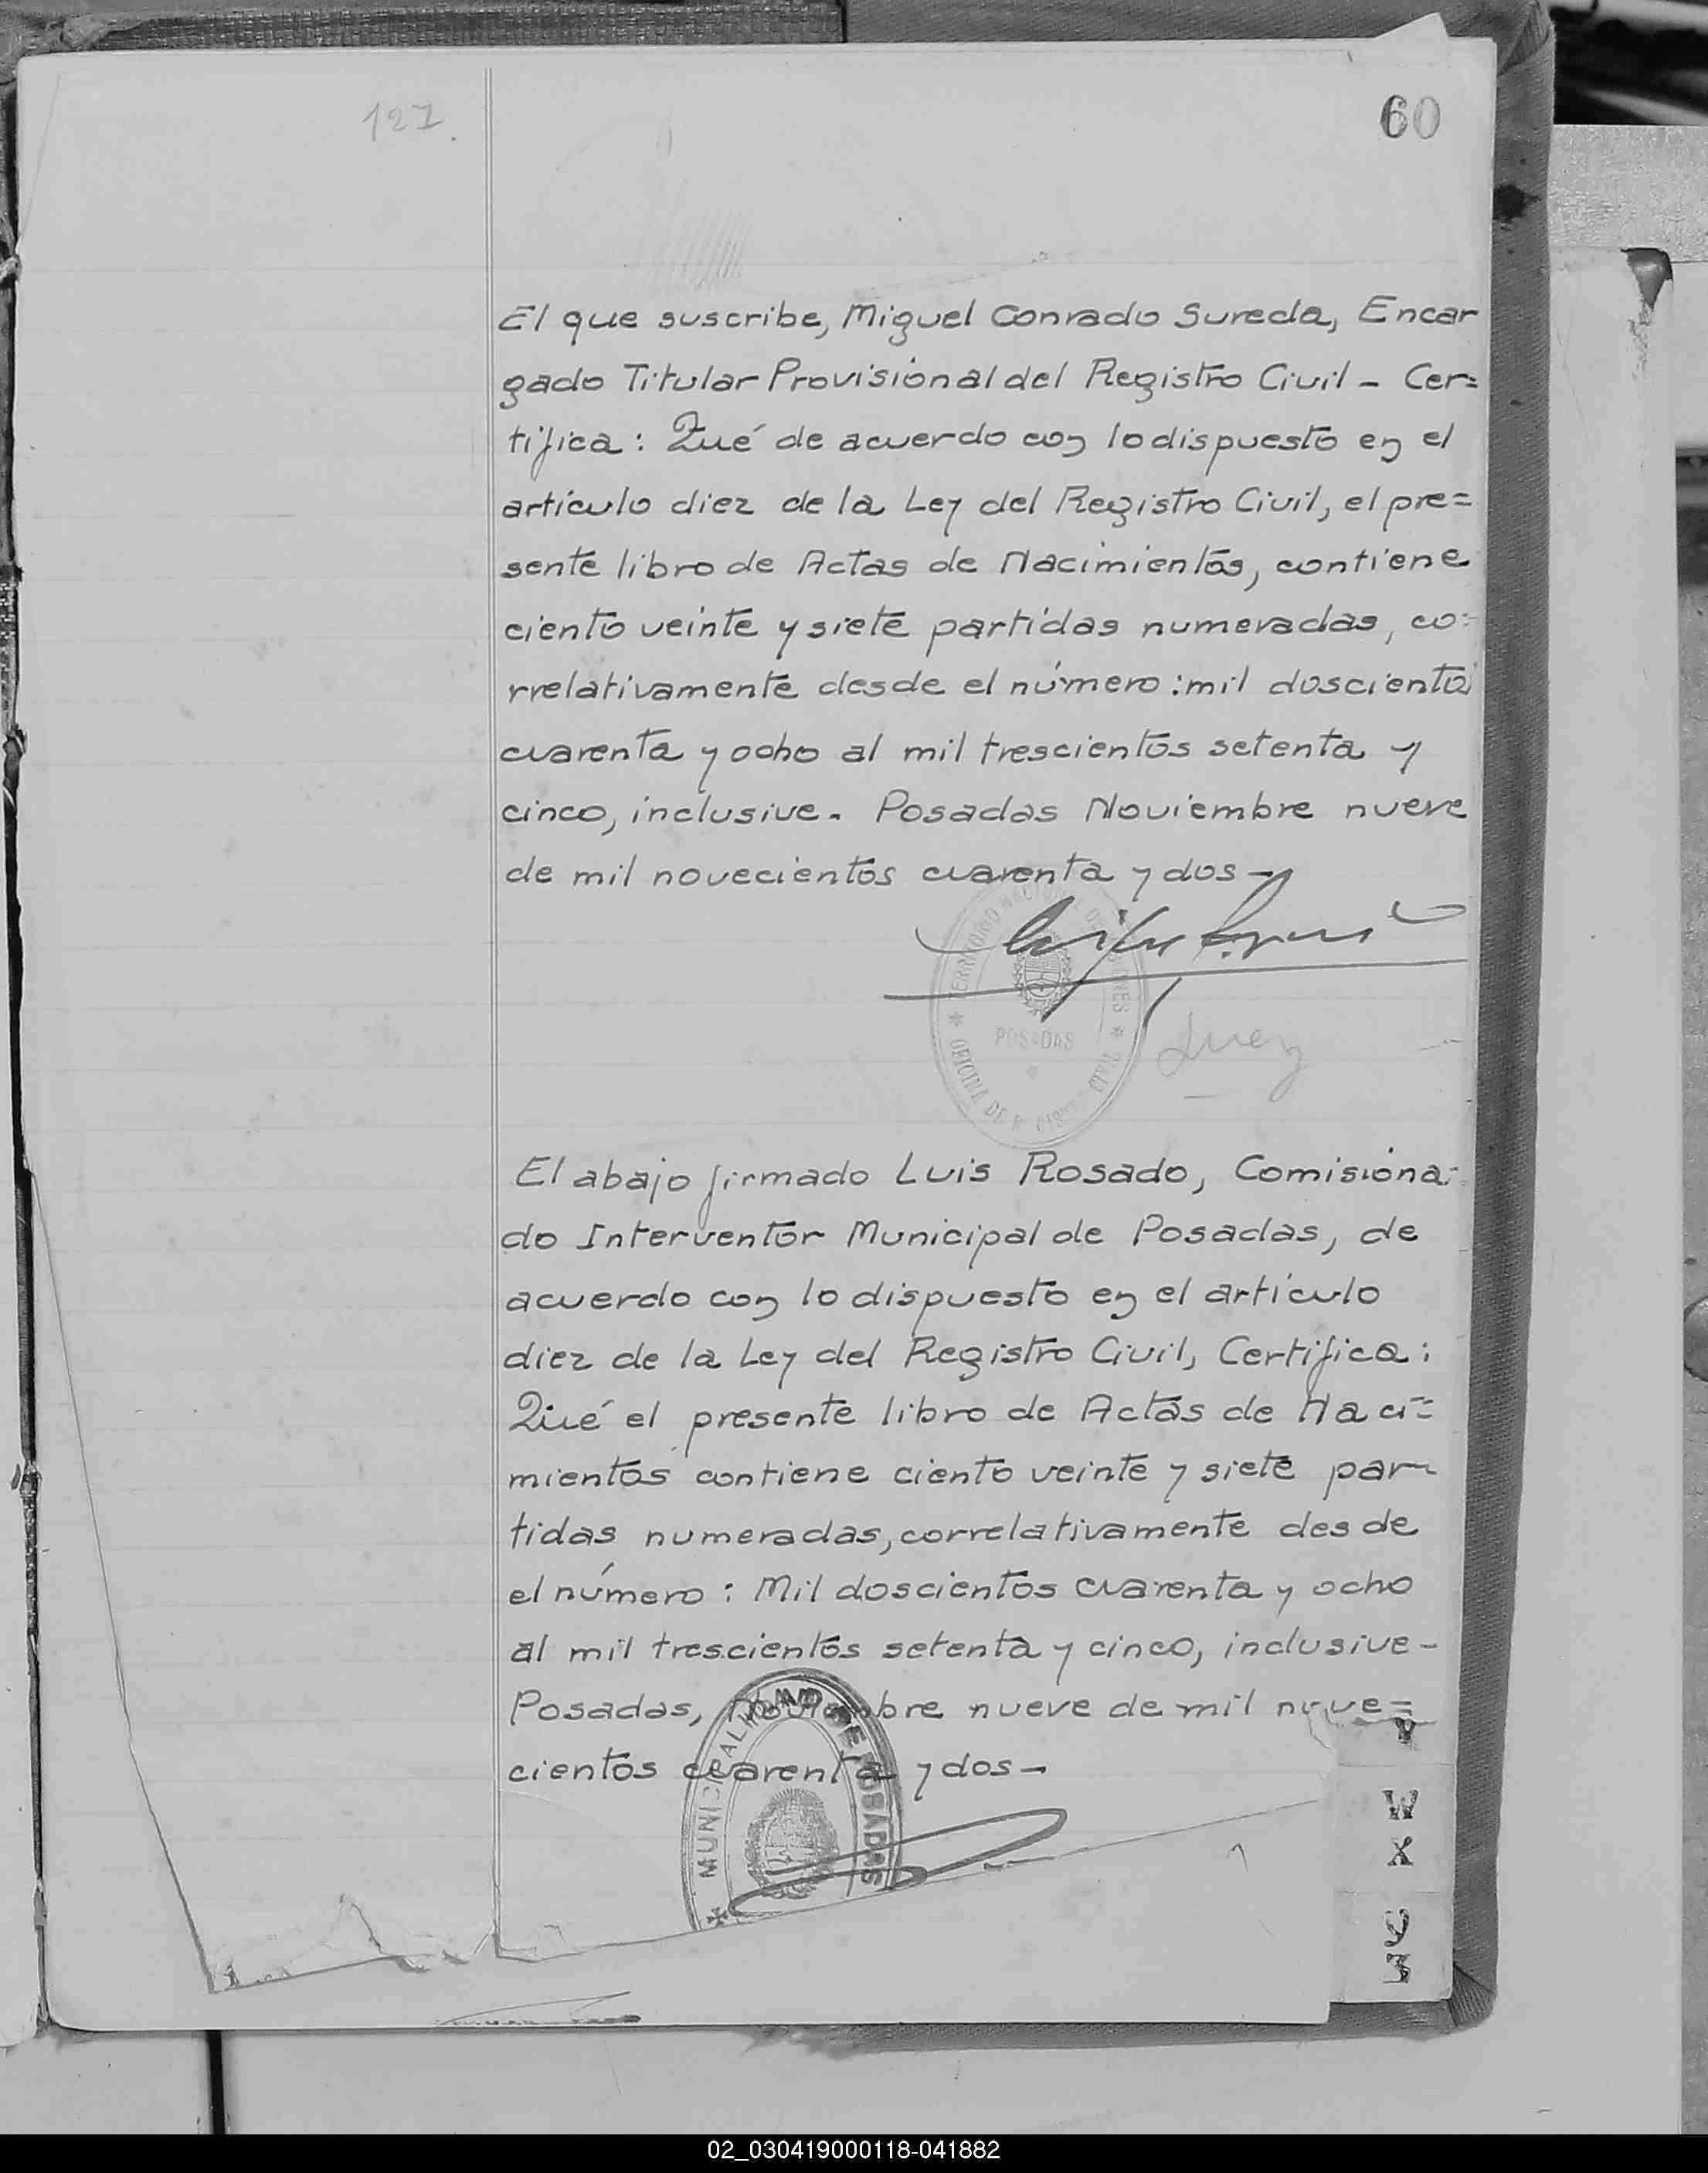 127.
60
El que suscribe, Miguel Conrado Sureda, Encar
gado Titular Provisional del Registro Civil - Cer=
tifica: Qué de acuerdo con lo dispuesto en el
artículo diez de la Ley del Registro Civil, el pre=
sente libro de Actas de Nacimientos, contiene
ciento veinte y siete partidas numeradas, co=
rrelativamente desde el número: mil doscientos
cuarenta y ocho al mil trescientos setenta y
cinco, inclusive. Posadas Noviembre nueve
de mil novecientos cuarenta y dos -
TERRITORIO NACIONAL DE MISIONES
POSADAS
OFICINA DE REGISTRO CIVIL
Juez
El abajo firmado Luis Rosado, Comisiona=
do Interventor Municipal de Posadas, de
acuerdo con lo dispuesto en el artículo
diez de la Ley del Registro Civil, Certifica:
Qué el presente libro de Actas de Naci=
mientos contiene ciento veinte y siete par-
tidas numeradas, correlativamente desde
el número: Mil doscientos cuarenta y ocho
al mil trescientos setenta y cinco, inclusive -
Posadas, Noviembre nueve de mil nove=
cientos cuarenta y dos -
MUNICIPALIDAD DE POSADAS
V
W
X
Y
Z
02_030419000118-041882